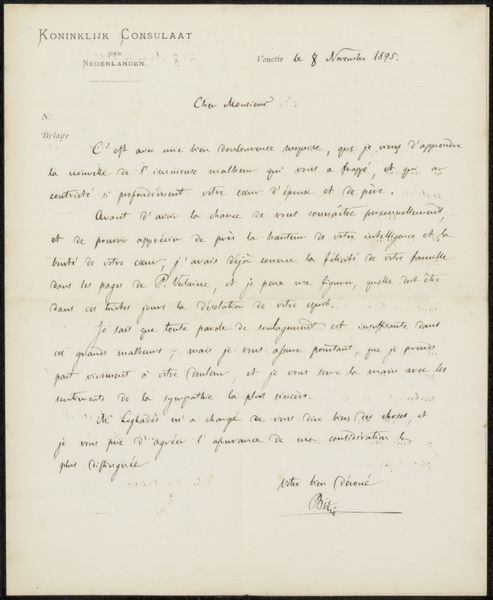 KONINKLIJK CONSULAAT
DER
NEDERLANDEN.
Venetie le 8 Novembre 1895.
Cher Monsieur
N.
Bylage
C'est avec une bien douloureuse surprise, que je viens d'apprendre
la nouvelle de l'immense malheur qui vous a frappé, et qui a
contristé si profondément votre cœur d'époux et de père.
Avant d'avoir la chance de vous connaître personnellement,
et de pouvoir apprécier de près la hauteur de votre intelligence et la
bonté de votre cœur, j'avais déjà connu la félicité de votre famille
dans les pages de P. Verlaine, et je peux me figurer, quelle doit être
dans ces tristes jours la désolation de votre esprit.
Je sais que toute parole de soulagement est insuffisante dans
ces grands malheurs; mais je vous assure pourtant, que je prends
part vivement à votre douleur, et je vous serre la main avec les
sentiments de la sympathie la plus sincère.
m'a chargé de vous dire bien des choses, et
je vous prie d'agréer l'assurance de ma considération la
plus distinguée
Votre bien dévoué